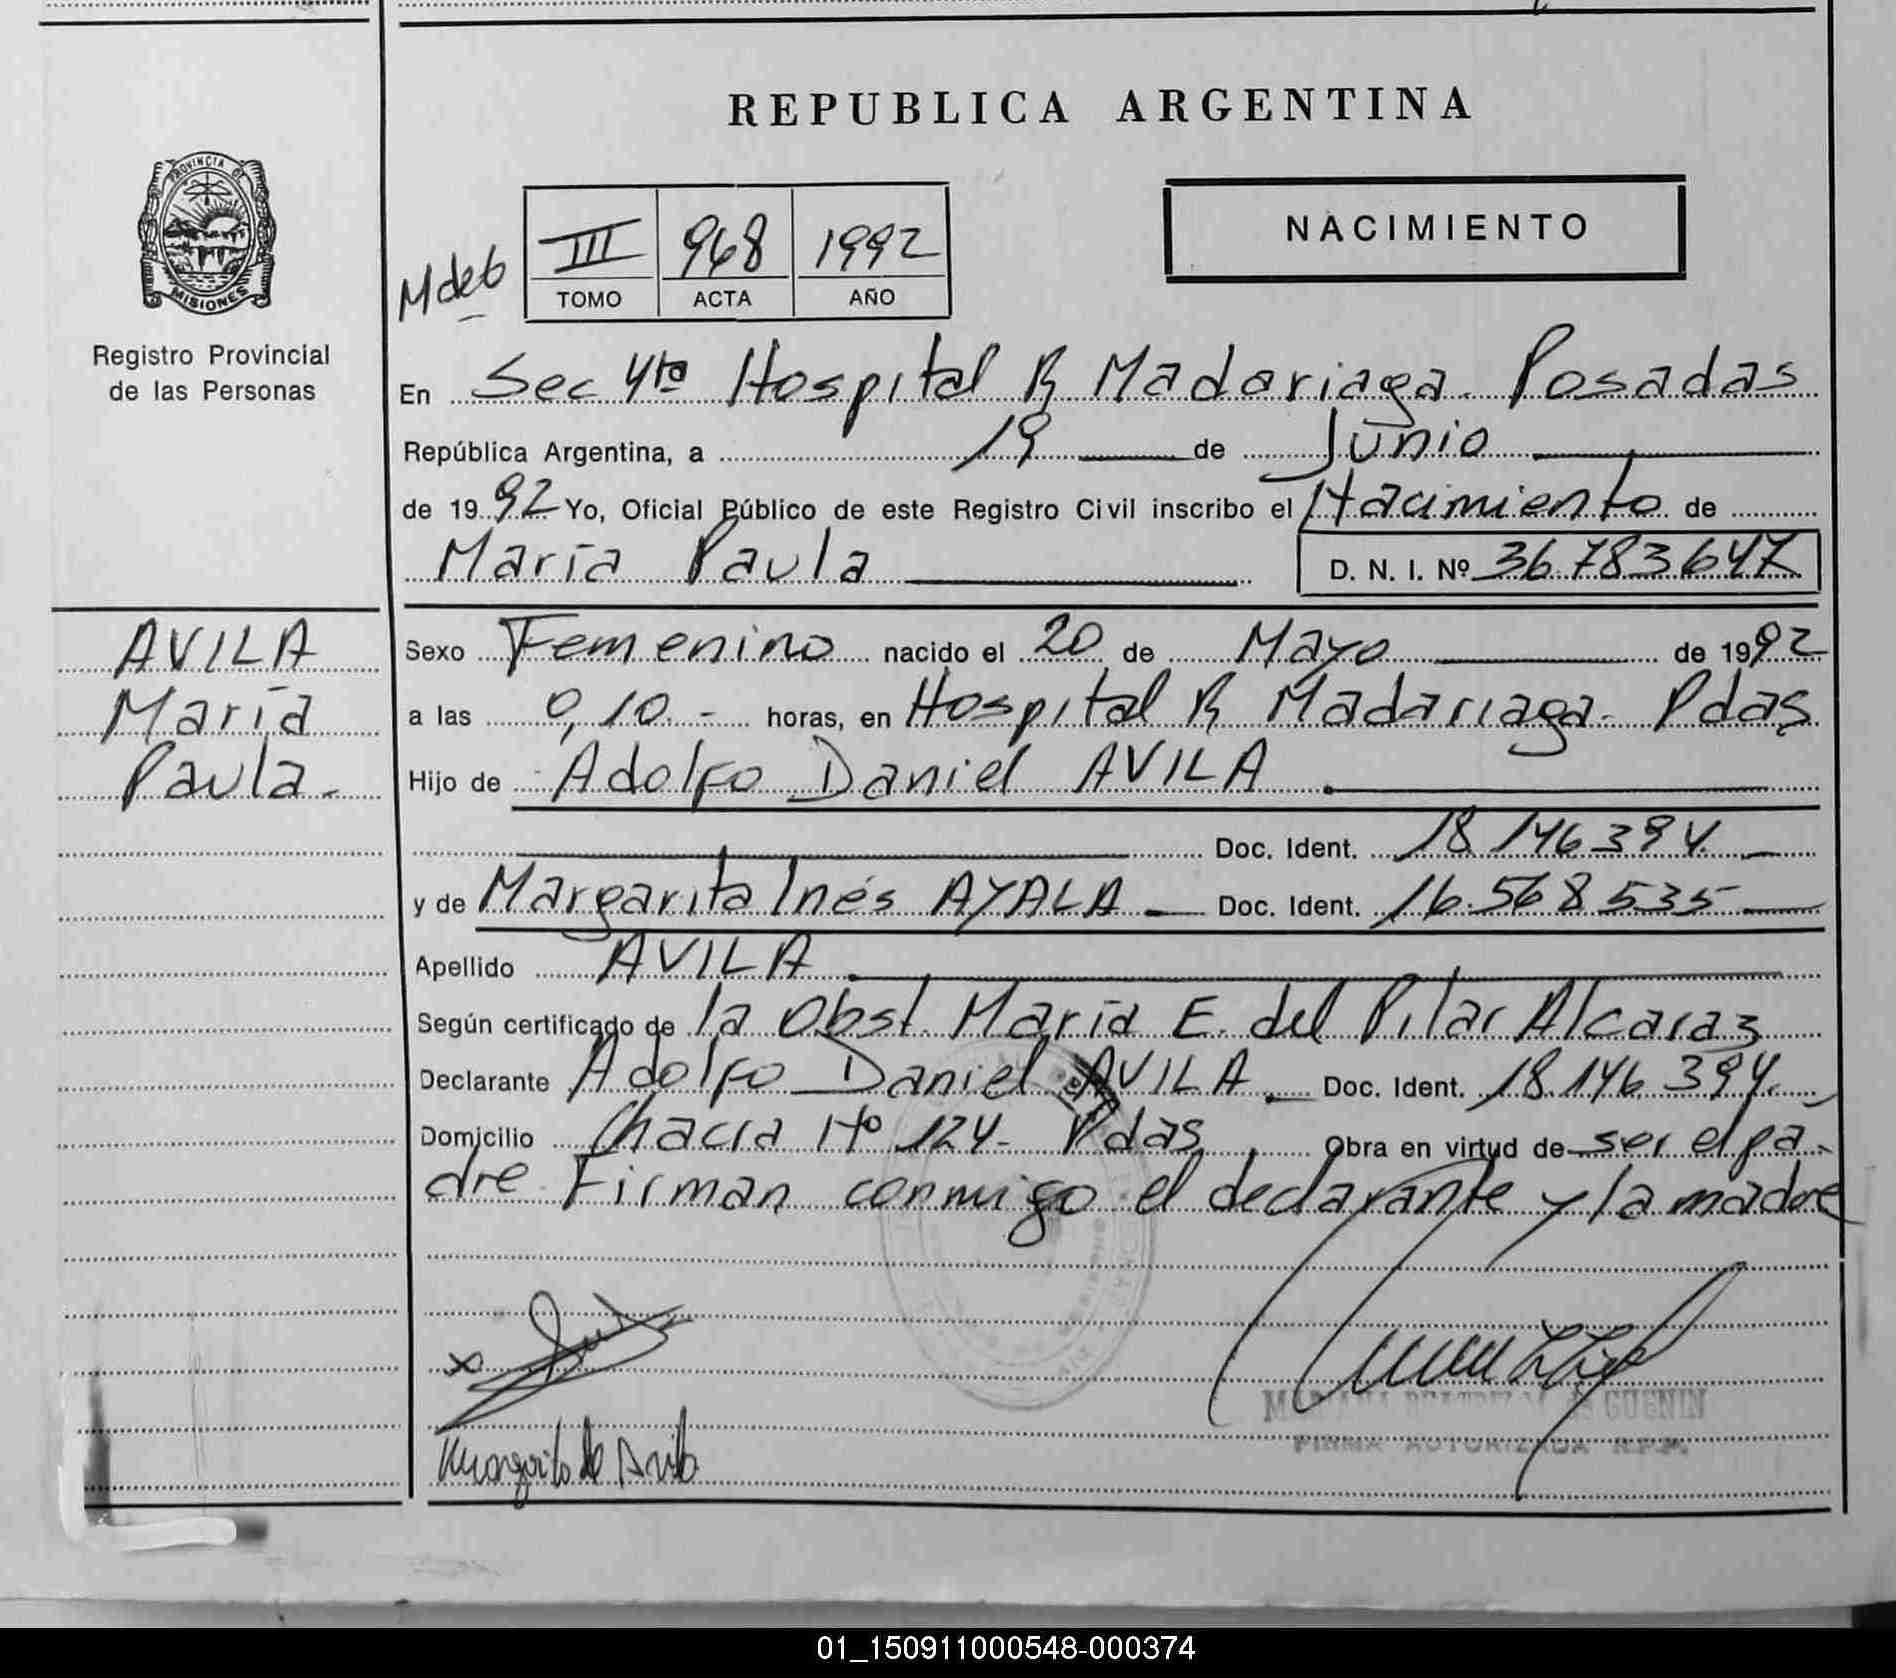 REPUBLICA ARGENTINA
PROVINCIA DE
MISIONES
Registro Provincial
de las Personas
III 968 1992
TOMO ACTA AÑO
NACIMIENTO
En Sec 4ta Hospital R Madariaga. Posadas
República Argentina, a 19 de Junio
de 1992 Yo, Oficial Público de este Registro Civil inscribo el Nacimiento de
María Paula D. N. I. Nº 36.783.647
AVILA
María
Paula.
Sexo Femenino nacido el 20 de Mayo de 1992
a las 0,10.- horas, en Hospital R Madariaga. Pdas
Hijo de Adolfo Daniel AVILA
Doc. Ident. 18.146.394.
y de Margarita Inés AYALA Doc. Ident. 16.568.535
Apellido AVILA
Según certificado de la Obst. María E. del Pilar Alcaraz
Declarante Adolfo Daniel AVILA Doc. Ident. 18.146.394.
Domicilio Chacra Nº 124- Pdas Obra en virtud de ser el pa-
dre. Firman conmigo el declarante y la madre
x
Margarita de Avila
GUENIN
FIRMA AUTORIZADA R.P.P.
01_150911000548-000374